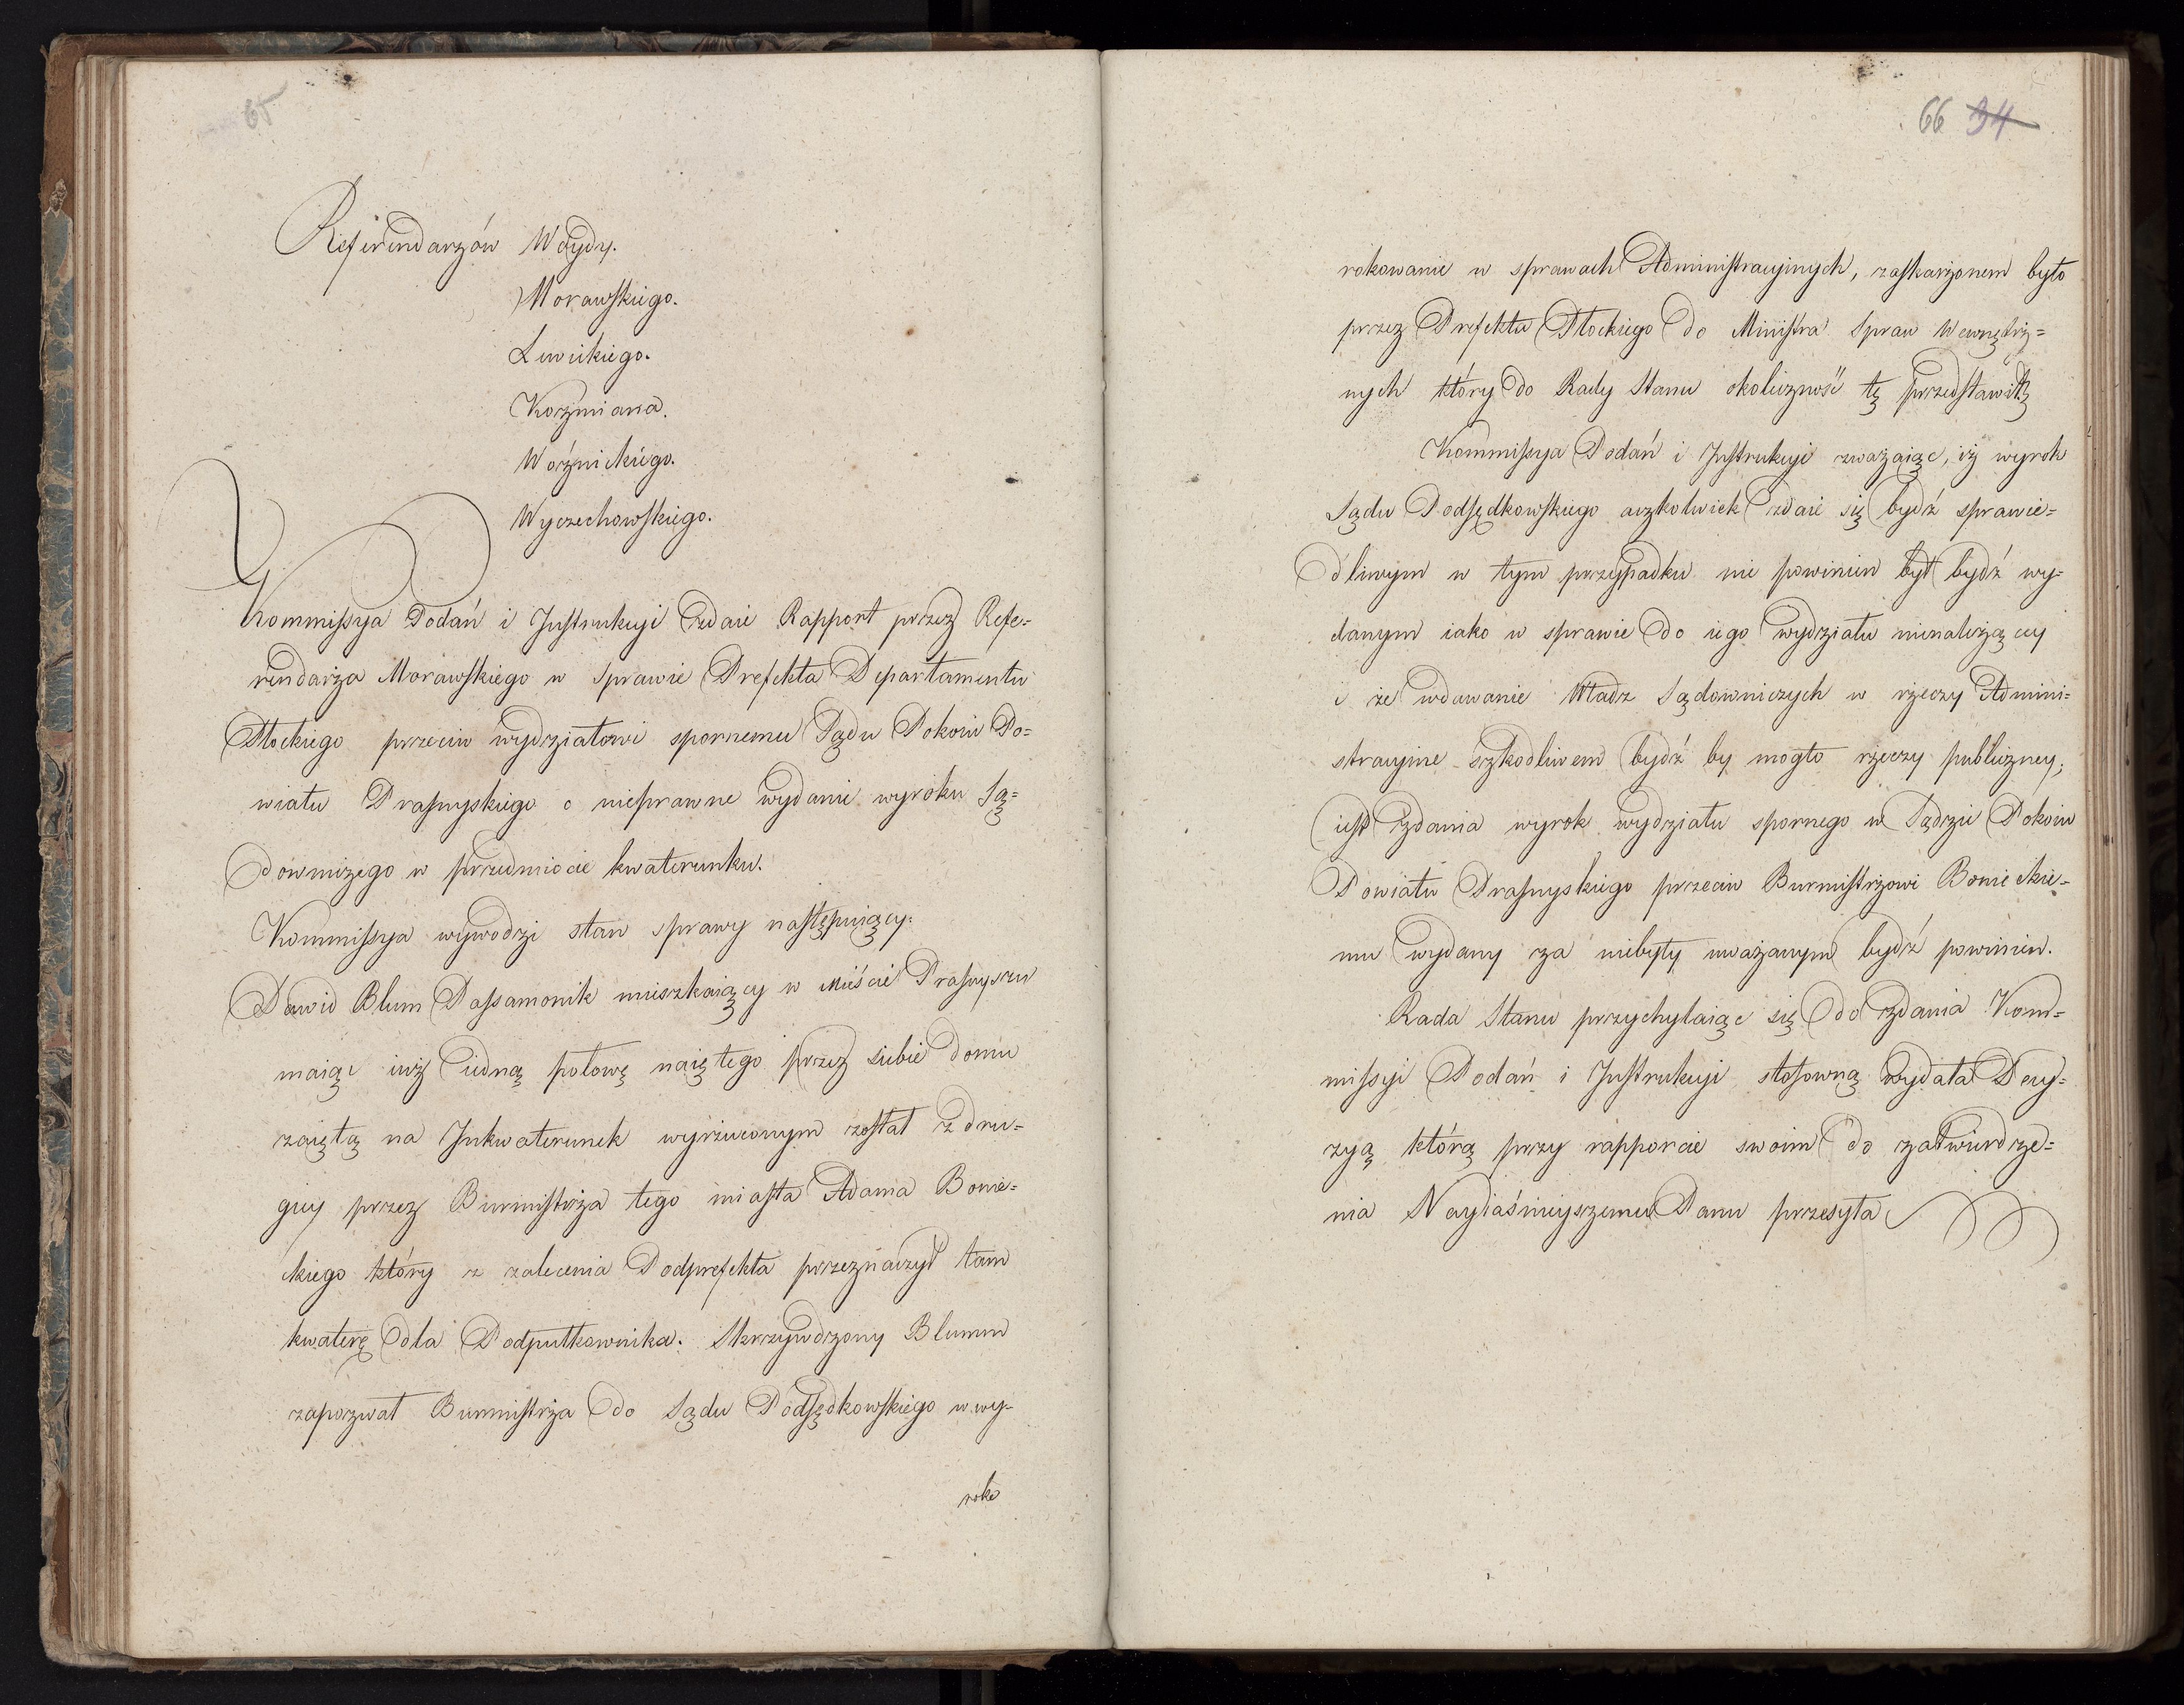 65
Referendarzów Woydy.
Morawskiego.
Lewickiego.
Koźmiana.
Woźnickiego.
Wyczechowskiego.
Kommissya Podań i Instrukcyi zdaie Rapport przez Refe=
rendarza Morawskiego w sprawie Prefekta Departamentu
Płockiego przeciw wydziałowi spornemu Sądu Pokoiu Po=
wiatu Prasnyskiego o nieprawne wydanie wyroku Są=
downiczego w przedmiocie kwaterunku.
Kommissya wywodzi stan sprawy następuiący:
Dawid Blum Passamonik mieszkaiący w mieście Prasnyszu
maiąc iuż iedną połowę naiętego przez siebie domu
zaiętą na Inkwaterunek wyrzuconym został z dru=
giey przez Burmistrza tego miasta Adama Bonie=
ckiego który z zalecenia Podprefekta przeznaczył tam
kwaterę dla Podpułkownika. Skrzywdzony Blumm
zapozwał Burmistrza do Sądu Podsędkowskiego w wy=
roko
66 34
rokowanie w sprawach Administracyinych, zaskarżonem było
przez Prefekta Płockiego do Ministra Spraw Wewnętrz=
nych który do Rady Stanu okoliczność tę przedstawił
Kommissya Podań i Instrukcyi zważaiąc, iż wyrok
Sądu Podsędkowskiego aczkolwiek zdaie się bydź sprawie=
dliwym w tym przypadku nie powinien był bydź wy=
danym iako w sprawie do iego wydziału nienależącey
i że wdawanie Władz Sądowniczych w rzeczy Admini=
stracyine szkodliwem bydź by mogło rzeczy publiczney;
iest zdania wyrok wydziału spornego w Sądzie Pokoiu
Powiatu Prasnyskiego przeciw Burmistrzowi Bonieckie=
mu wydany za niebyły uważanym bydź powinien.
Rada Stanu przychylaiąc się do zdania Kom=
missyi Podań i Instrukcyi stosowną wydała Decy=
zyą którą przy rapporcie swoim do zatwierdze=
nia Nayiaśnieyszemu Panu przesyła